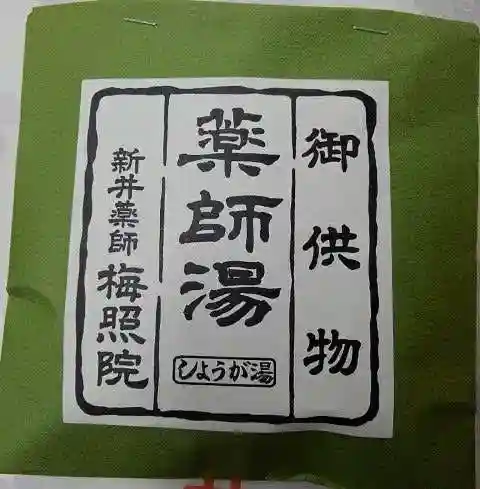 御供物
薬師湯
しょうが湯
新井薬師 梅照院